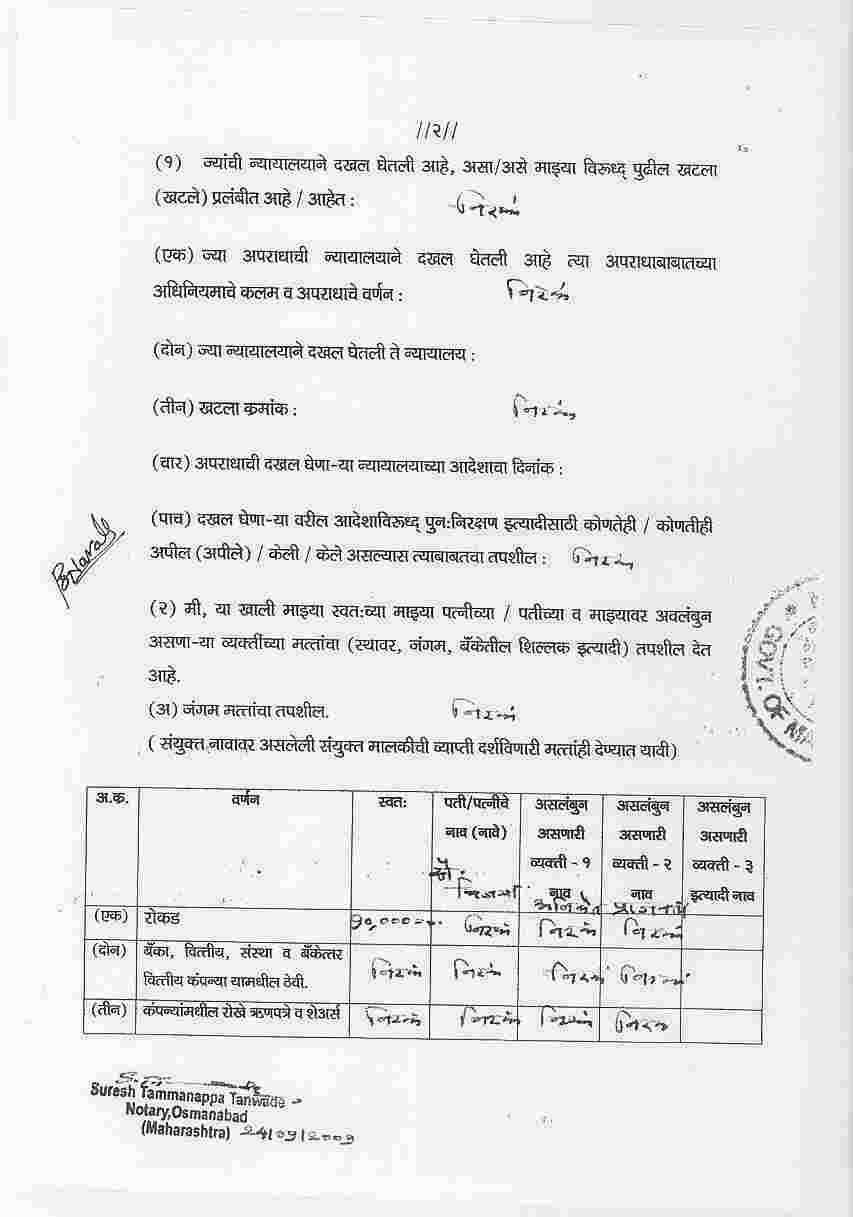 //२//
(१) ज्यांची न्यायालयाने दखल घेतली आहे, असा/असे माझ्या विरूध्द् पुढील खटला
(खटले) प्रलंबीत आहे / आहेत : निरंक
(एक) ज्या अपराधाची न्यायालयाने दखल घेतली आहे त्या अपराधाबाबतच्या
अधिनियमाचे कलम व अपराधाचे वर्णन : निरंक
(दोन) ज्या न्यायालयाने दखल घेतली ते न्यायालय :
(तीन) खटला क्रमांक : निरंक
(चार) अपराधाची दखल घेणा-या न्यायालयाच्या आदेशाचा दिनांक :
(पाच) दखल घेणा-या वरील आदेशाविरूध्द् पुन:निरक्षण इत्यादीसाठी कोणतेही / कोणतीही
अपील (अपीले) / केली / केले असल्यास त्याबाबतचा तपशील : निरंक
(२) मी, या खाली माझ्या स्वत:च्या माझ्या पत्नीच्या / पतीच्या व माझ्यावर अवलंबुन
असणा-या व्यक्तींच्या मत्तांचा (स्थावर, जंगम, बॅंकेतील शिल्लक इत्यादी) तपशील देत
आहे.
(अ) जंगम मत्तांचा तपशील. निरंक
( संयुक्त नावावर असलेली संयुक्त मालकीची व्याप्ती दर्शविणारी मत्तांही देण्यात यावी)
GOVT. OF MA
अ.क्र. वर्णन स्वत: पती/पत्नीचे असलंबुन असलंबुन असलंबुन
नाव (नावे) असणारी असणारी असणारी
व्यक्ती - १ व्यक्ती - २ व्यक्ती - ३
सौ. नाव नाव इत्यादी नाव
अनिकेत
(एक) रोकड १०,०००=०० निरंक निरंक निरंक
(दोन) बॅंका, वित्तीय, संस्था व बॅंकेत्तर
वित्तीय कंपन्या यामधील ठेवी. निरंक निरंक निरंक निरंक
(तीन) कंपन्यांमधील रोखे ऋणपत्रे व शेअर्स निरंक निरंक निरंक निरंक
Suresh Tammanappa Tanwade
Notary,Osmanabad
(Maharashtra) 24/09/2009